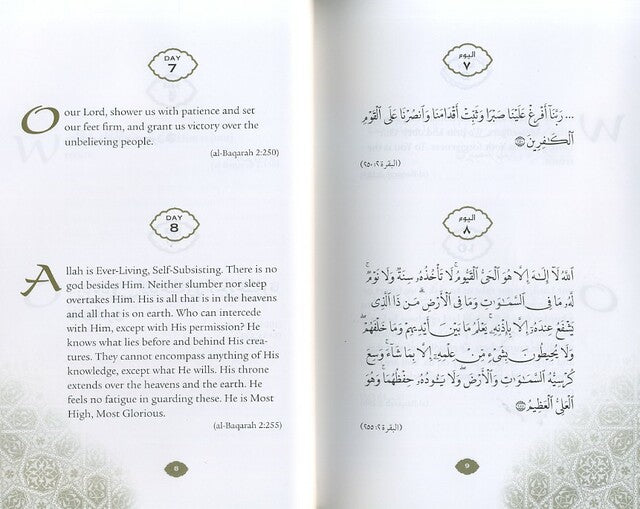 DAY
7
Our Lord, shower us with patience and set
our feet firm, and grant us victory over the
unbelieving people.
(al-Baqarah 2:250)
DAY
8
Allah is Ever-Living, Self-Subsisting. There is no
god besides Him. Neither slumber nor sleep
overtakes Him. His is all that is in the heavens
and all that is on earth. Who can intercede
with Him, except with His permission? He
knows what lies before and behind His crea-
tures. They cannot encompass anything of His
knowledge, except what He wills. His throne
extends over the heavens and the earth. He
feels no fatigue in guarding these. He is Most
High, Most Glorious.
(al-Baqarah 2:255)
8
اليوم
٧
... رَبَّنَآ أَفْرِغْ عَلَيْنَا صَبْرًا وَثَبِّتْ أَقْدَامَنَا وَٱنصُرْنَا عَلَى ٱلْقَوْمِ
ٱلْكَـٰفِرِينَ
(البقرة ٢: ٢٥٠)
اليوم
٨
ٱللَّهُ لَآ إِلَـٰهَ إِلَّا هُوَ ٱلْحَىُّ ٱلْقَيُّومُ ۚ لَا تَأْخُذُهُۥ سِنَةٌ وَلَا نَوْمٌ ۚ
لَّهُۥ مَا فِى ٱلسَّمَـٰوَٰتِ وَمَا فِى ٱلْأَرْضِ ۗ مَن ذَا ٱلَّذِى
يَشْفَعُ عِندَهُۥٓ إِلَّا بِإِذْنِهِۦ ۚ يَعْلَمُ مَا بَيْنَ أَيْدِيهِمْ وَمَا خَلْفَهُمْ ۖ
وَلَا يُحِيطُونَ بِشَىْءٍ مِّنْ عِلْمِهِۦٓ إِلَّا بِمَا شَآءَ ۚ وَسِعَ
كُرْسِيُّهُ ٱلسَّمَـٰوَٰتِ وَٱلْأَرْضَ ۖ وَلَا يَـُٔودُهُۥ حِفْظُهُمَا ۚ وَهُوَ
ٱلْعَلِىُّ ٱلْعَظِيمُ
(البقرة ٢: ٢٥٥)
9